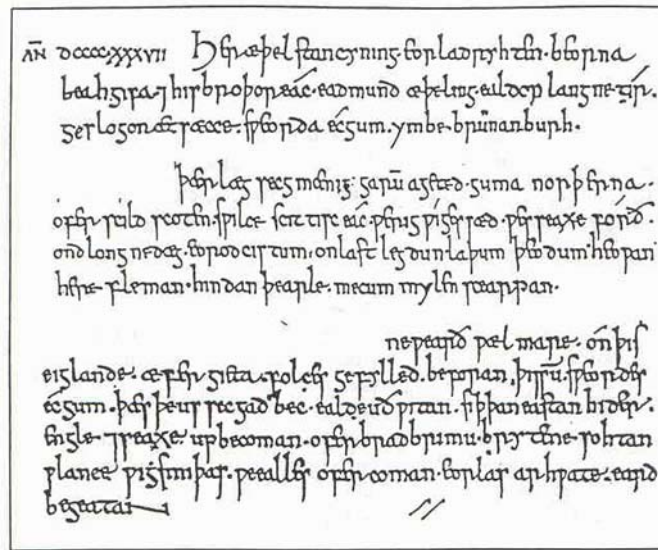 AN̄ DCCCCXXXVII Her æþelstan cyning. eorla dryhten. beorna
beahgifa. ⁊ his broþor eác. eadmund æþeling. ealdor langne tír.
geslogon æt sæcce. sƿeorda écgum. ymbe brunanburh.
þær læg secg mænig. garū ageted. guma norþerna.
ofer scild scoten. sƿilce scittisc eác. ƿerig ƿiges sæd. ƿesseaxe forð.
ondlongne dæg. eorodcistum. on last legdun laþum þeodum. heoƿan
here fleman. hindan þearle. mecum mylen scearpan.
ne ƿearð ƿæl mare. ón þis
eiglande. æfer gieta. folces gefylled. beforan þissū. sƿeordes
écgum. þæs þe us secgað bec. ealde uðƿitan. siþþan eastan hider.
engle ⁊ seaxe up becoman. ofer brad brimu. brytene sohtan
ƿlance ƿigsmiþas. ƿealles ofercoman. eorlas arhƿate. eard
begeatan